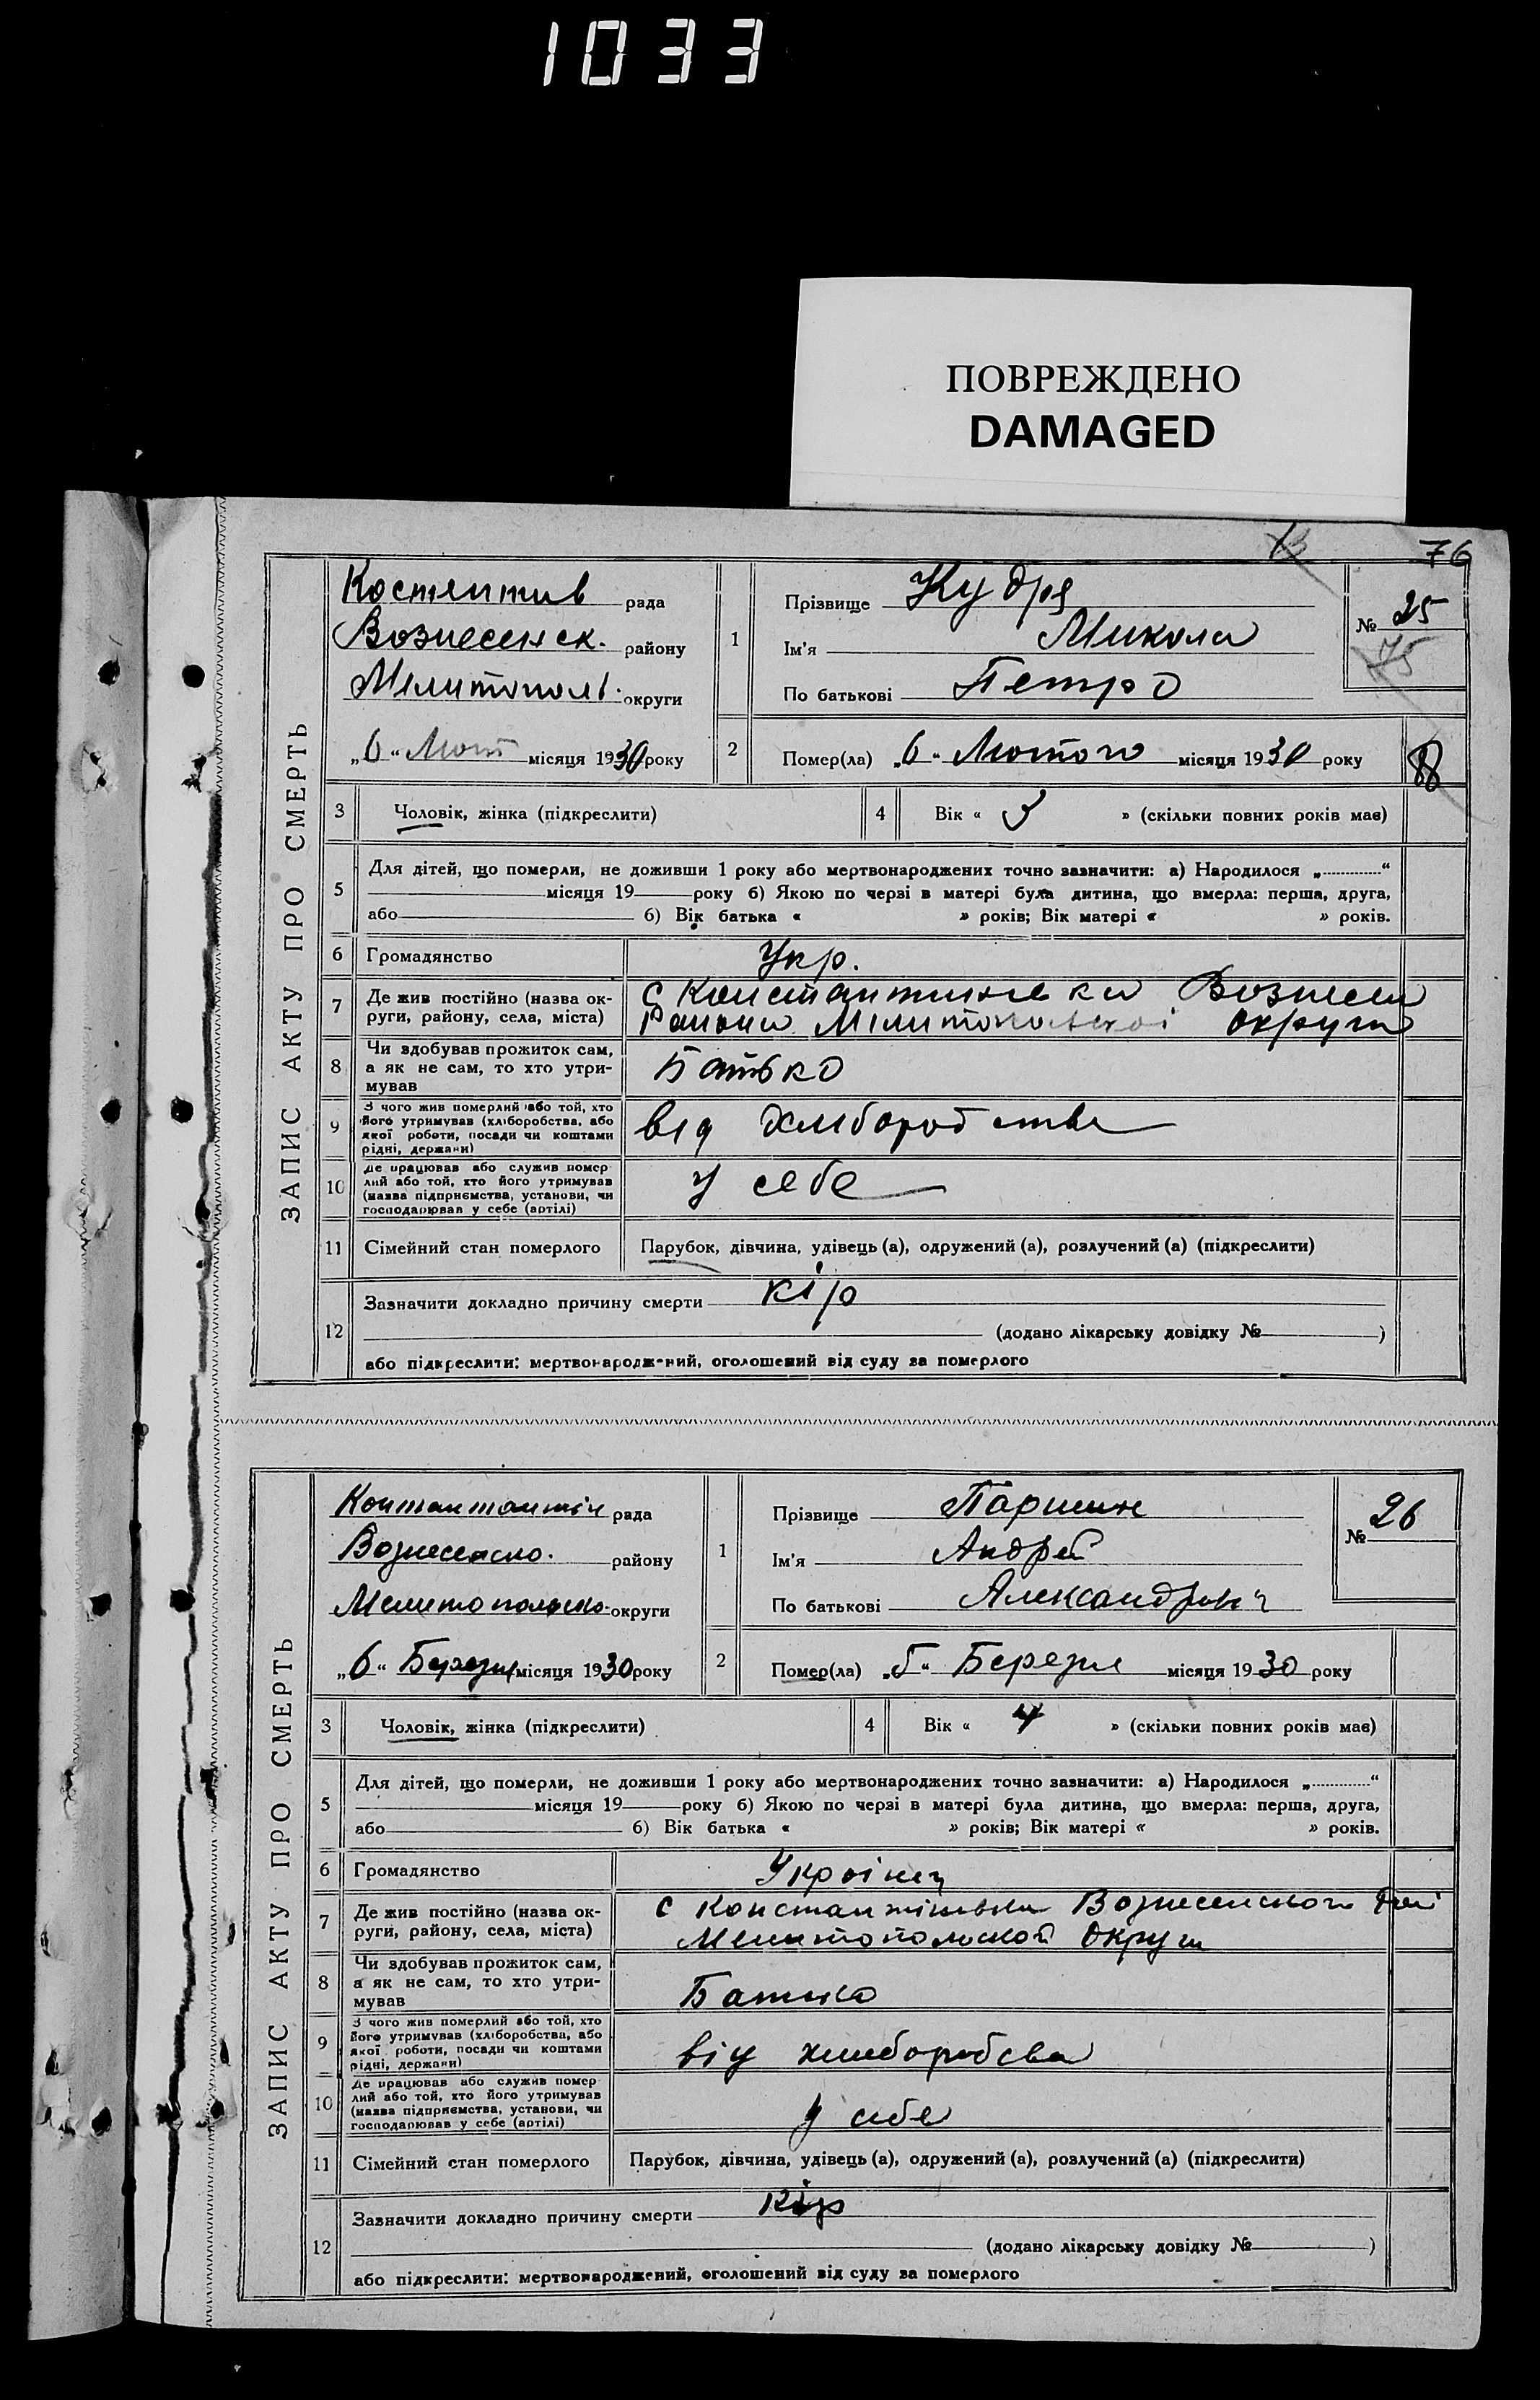 1033
ПОВРЕЖДЕНО
DAMAGED
76
ЗАПИС АКТУ ПРО СМЕРТЬ
рада
Вознесенск. району
округи
„6“ Лют місяця 1930 року
1
Прізвище Кудря
Ім'я Микола
По батькові Петро
№ 25
75
2
Помер(ла) „6“ Лютого місяця 1930 року
3
Чоловік, жінка (підкреслити)
4
Вік « 3 » (скільки повних років має)
5
Для дітей, що померли, не доживши 1 року або мертвонароджених точно зазначити: а) Народилося „............“
місяця 19 року б) Якою по черзі в матері була дитина, що вмерла: перша, друга,
або б) Вік батька « » років; Вік матері « » років.
6
Громадянство
Укр.
7
Де жив постійно (назва ок-
руги, району, села, міста)
с Константиневки Вознесен
Району Мелитопольскоі округи
8
Чи здобував прожиток сам,
а як не сам, то хто утри-
мував
Батько
9
З чого жив померлий або той, хто
його утримував (хліборобства, або
якої роботи, посади чи коштами
рідні, держави)
від хлиборобства
10
Де працював або служив помер-
лий або той, хто його утримував
(назва підприємства, установи, чи
господарював у себе (артілі)
у себе
11
Сімейний стан померлого
Парубок, дівчина, удівець (а), одружений (а), розлучений (а) (підкреслити)
12
Зазначити докладно причину смерти кір
(додано лікарську довідку № )
або підкреслити: мертвонароджений, оголошений від суду за померлого
ЗАПИС АКТУ ПРО СМЕРТЬ
рада
Вознесенско. району
Мелитополько. округи
„6“ Березня місяця 1930 року
1
Прізвище
Ім'я Андрей
По батькові Александрович
№ 26
2
Помер(ла) „5“ Березня місяця 1930 року
3
Чоловік, жінка (підкреслити)
4
Вік « 4 » (скільки повних років має)
5
Для дітей, що померли, не доживши 1 року або мертвонароджених точно зазначити: а) Народилося „............“
місяця 19 року б) Якою по черзі в матері була дитина, що вмерла: перша, друга,
або б) Вік батька « » років; Вік матері « » років.
6
Громадянство
Украінец
7
Де жив постійно (назва ок-
руги, району, села, міста)
с Константінівки Вознесенского
Мелитопольской Округи
8
Чи здобував прожиток сам,
а як не сам, то хто утри-
мував
Батько
9
З чого жив померлий або той, хто
його утримував (хліборобства, або
якої роботи, посади чи коштами
рідні, держави)
від хлиборобсва
10
Де працював або служив помер-
лий або той, хто його утримував
(назва підприємства, установи, чи
господарював у себе (артілі)
у себе
11
Сімейний стан померлого
Парубок, дівчина, удівець (а), одружений (а), розлучений (а) (підкреслити)
12
Зазначити докладно причину смерти кір
(додано лікарську довідку № )
або підкреслити: мертвонароджений, оголошений від суду за померлого